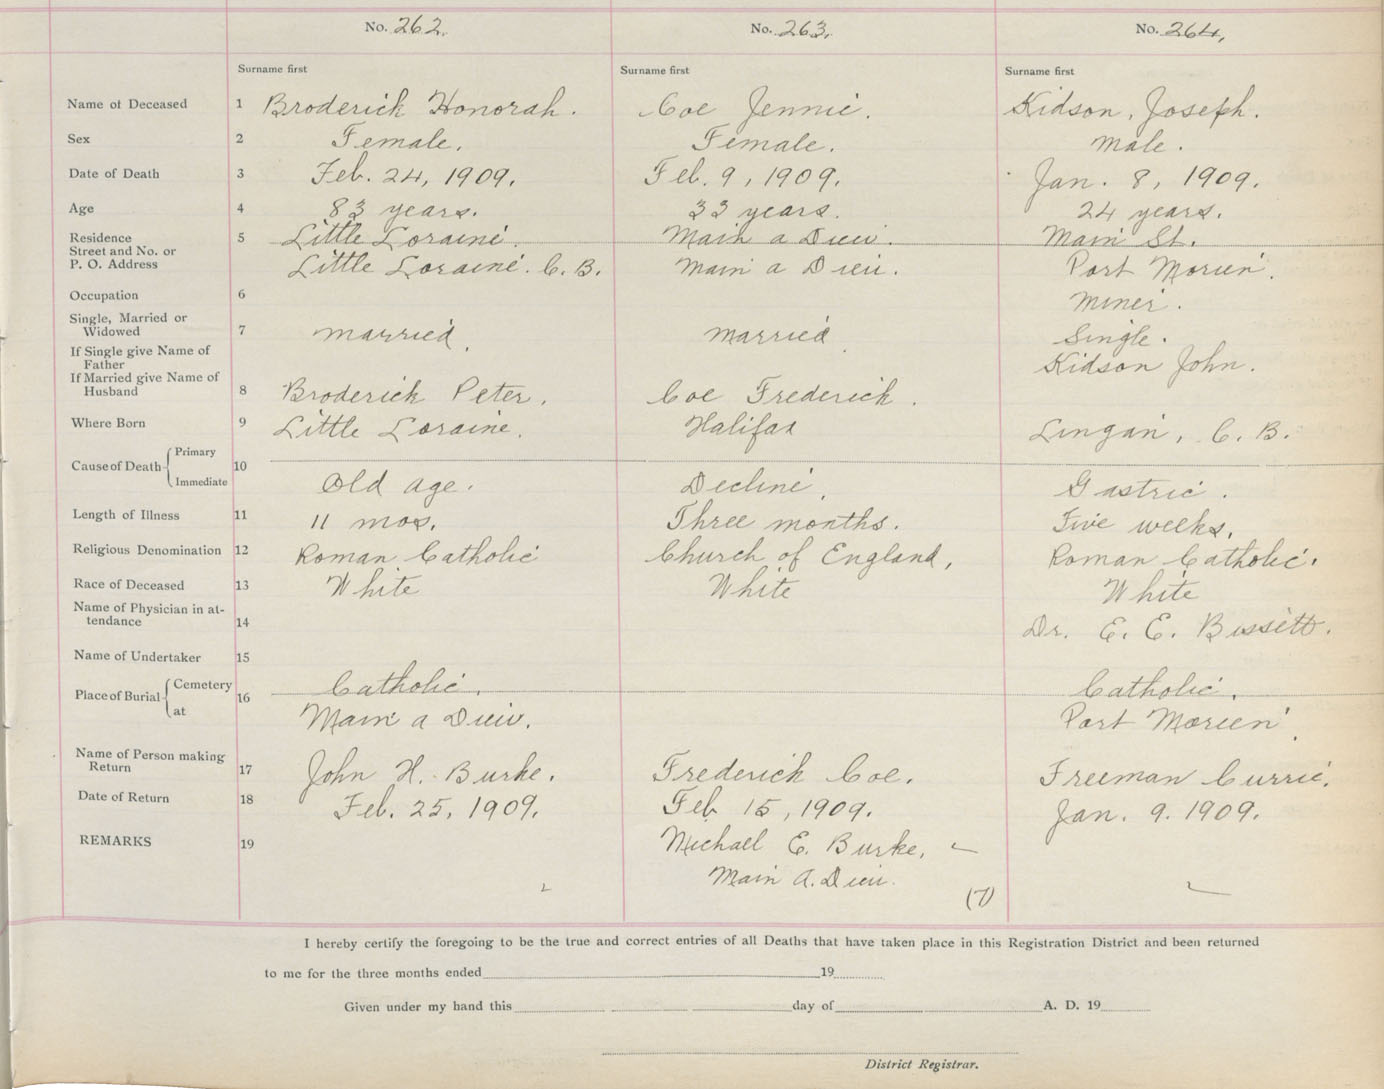 No. 262. No. 263. No. 264.
Surname first Surname first Surname first
Name of Deceased 1 Broderick Honorah. Coe Jennie. Kidson, Joseph.
Sex 2 Female. Female. Male.
Date of Death 3 Feb. 24, 1909. Feb. 9, 1909. Jan. 8, 1909.
Age 4 83 years. 33 years. 24 years.
Residence 5 Little Loraine. Main a Dieu. Main St.
Street and No. or
P. O. Address Little Loraine. C. B. Main a Dieu. Port Morien.
Occupation 6 Miner.
Single, Married or
Widowed 7 Married. Married. Single.
If Single give Name of
Father Kidson John.
If Married give Name of
Husband 8 Broderick Peter. Coe Frederick.
Where Born 9 Little Loraine. Halifax Lingan, C. B.
Cause of Death Primary 10
Immediate Old age. Decline. Gastric.
Length of Illness 11 11 mos. Three months. Five weeks.
Religious Denomination 12 Roman Catholic Church of England, Roman Catholic.
Race of Deceased 13 White White White
Name of Physician in at-
tendance 14 Dr. E. E. Bissett.
Name of Undertaker 15
Place of Burial Cemetery 16 Catholic. Catholic.
at Main a Dieu. Port Morien.
Name of Person making
Return 17 John H. Burke. Frederick Coe. Freeman Currie.
Date of Return 18 Feb. 25, 1909. Feb 15, 1909. Jan. 9. 1909.
REMARKS 19 Michael E. Burke,
Main A. Dieu.
(7)
I hereby certify the foregoing to be the true and correct entries of all Deaths that have taken place in this Registration District and been returned
to me for the three months ended 19
Given under my hand this day of A. D. 19
District Registrar.